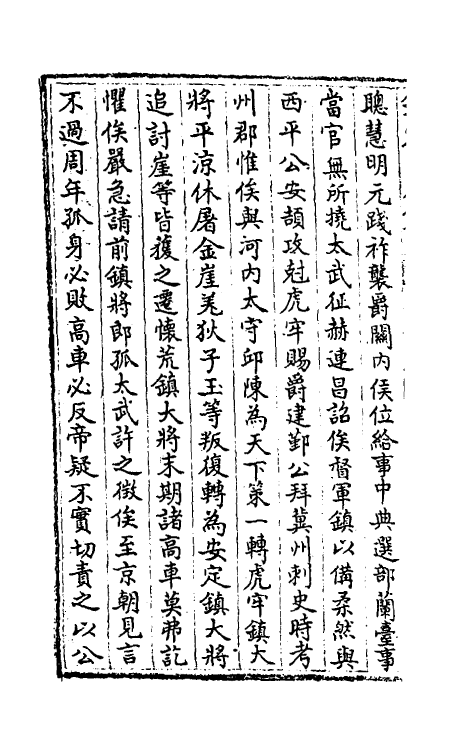 聰慧明元踐祚襲爵關内侯位給事中典選部蘭臺事
當官無所撓太武征赫連昌詔俟督軍鎮以備柔然與
西平公安頡攻尅虎牢賜爵建鄴公拜冀州刺史時考
州郡惟俟與河内太守邱陳為天下第一轉虎牢鎮大
將平涼休屠金崖羌狄子玉等叛復轉為安定鎮大將
追討崖等皆獲之遷懷荒鎮大將未期諸高車莫弗訖
懼俟嚴急請前鎮將郎孤太武許之徵俟至京朝見言
不過周年孤身必敗高車必反帝疑不實切責之以公